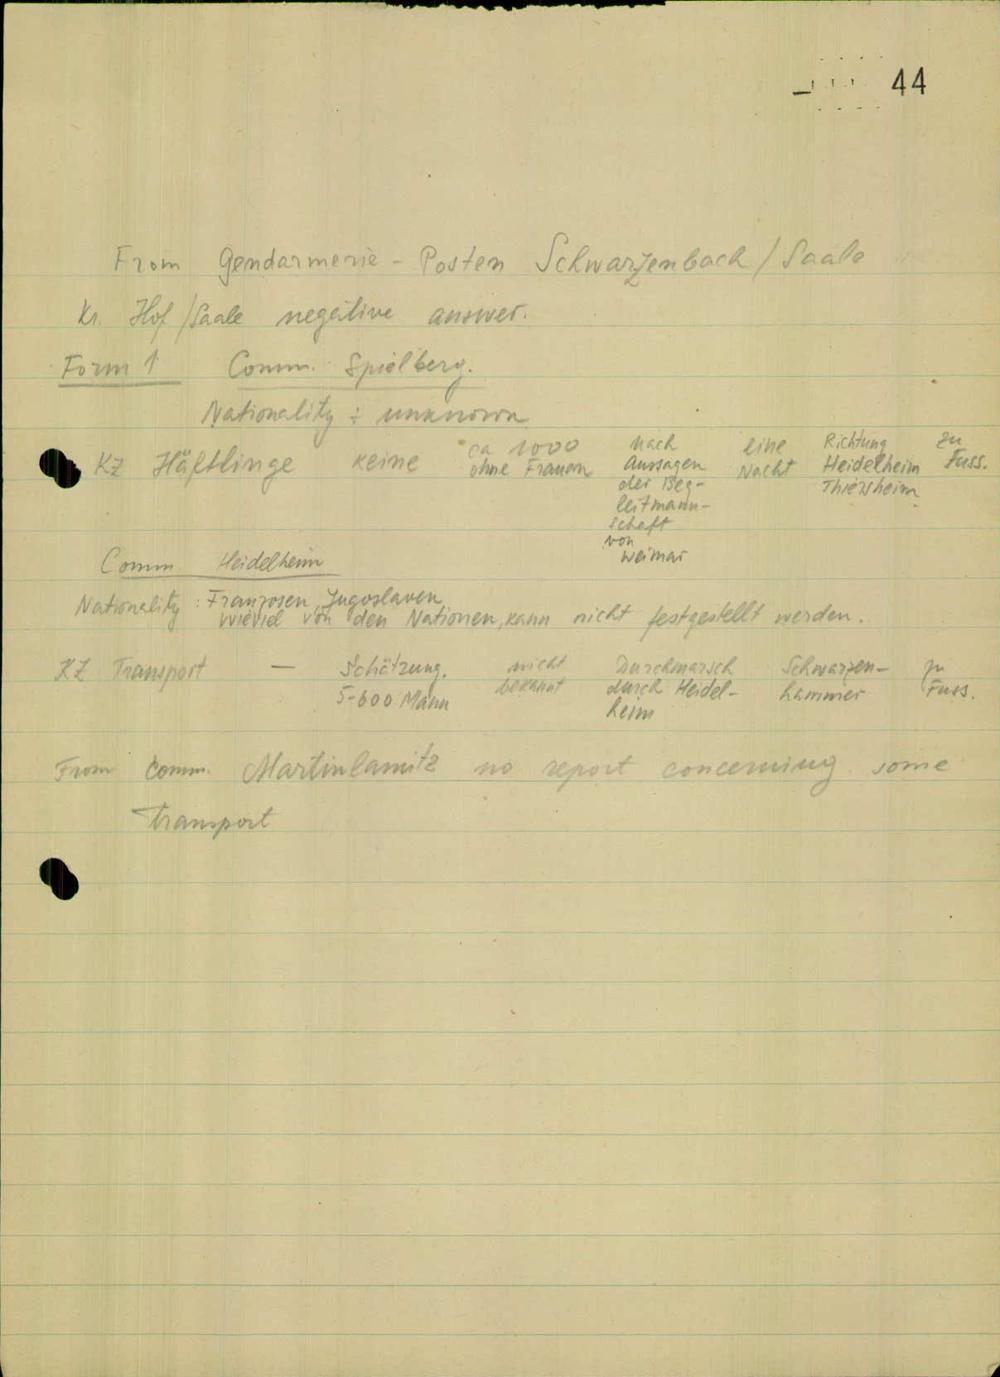 44
From Gendarmerie - Posten Schwarzenbach / Saale
Kr. Hof / Saale negative answer.
Form 1 Comm. Spielberg.
Nationality : unknown
KZ Häftlinge keine ca 1000 ohne Frauen nach Aussagen der Beg- leitmann- schaft von Weimar eine Nacht Richtung Heidelheim Thiersheim zu Fuss.
Comm Heidelheim
Nationality : Franzosen, Jugoslaven
wieviel von den Nationen, kann nicht festgestellt werden.
KZ Transport — Schätzung. 5-600 Mann nicht bekannt Durchmarsch durch Heidel- heim Schwarzen- hammer zu Fuss.
From Comm. Martinlamitz no report concerning some
Transport